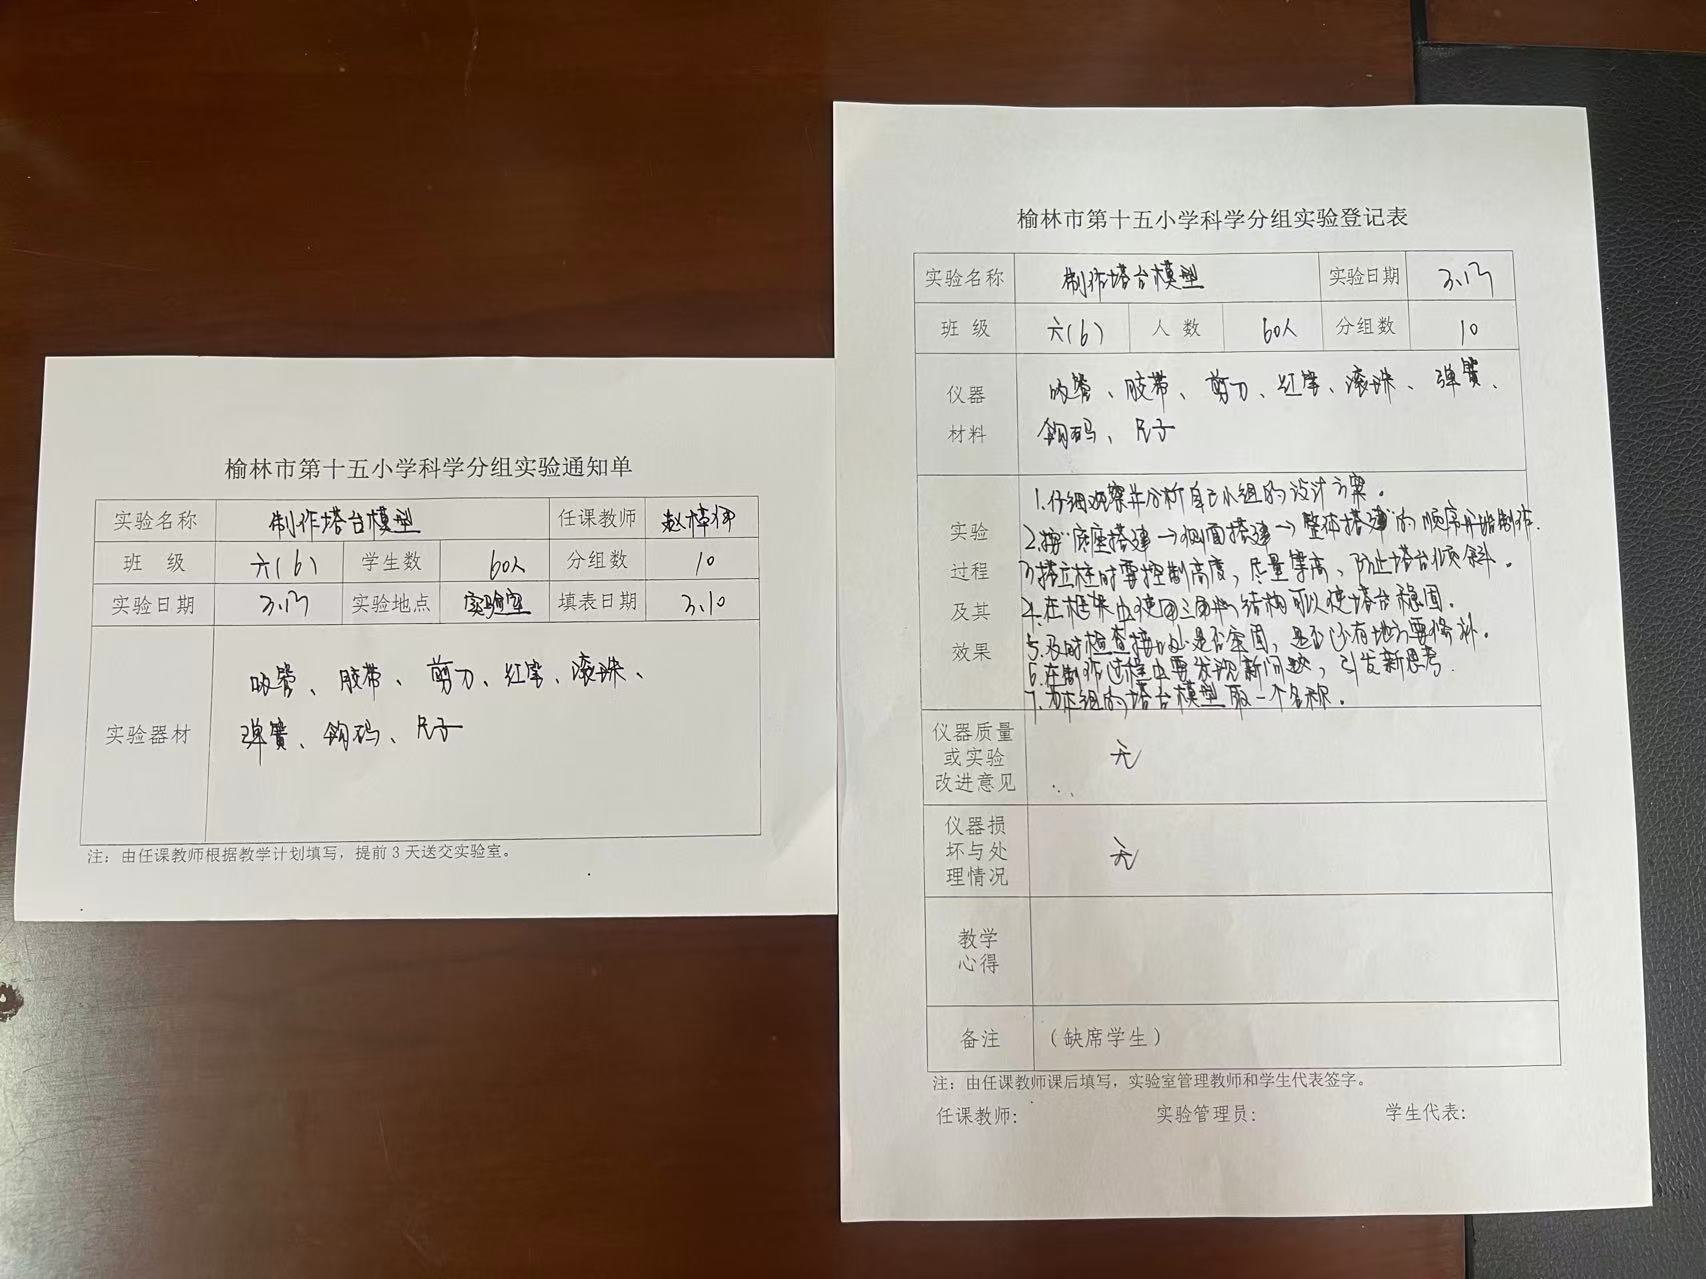 榆林市第十五小学科学分组实验通知单
实验名称 制作塔台模型 任课教师
班 级 六(6) 学生数 60人 分组数 10
实验日期 3.13 实验地点 实验室 填表日期 3.10
实验器材
吸管、胶带、剪刀、红笔、滚珠、
弹簧、钩码、尺子
注：由任课教师根据教学计划填写，提前3天送交实验室。
榆林市第十五小学科学分组实验登记表
实验名称 制作塔台模型 实验日期 3.13
班 级 六(6) 人 数 60人 分组数 10
仪器
材料
吸管、胶带、剪刀、红笔、滚珠、弹簧、
钩码、尺子
实验
过程
及其
效果
1.仔细观察并分析自己小组的设计方案。
2.按“底座搭建→侧面搭建→整体搭建”的顺序开始制作.
3.搭立柱时要控制高度，尽量等高，防止塔台倾斜。
4.在框架中使用三角形结构可以使塔台稳固。
5.及时检查接口处是否牢固，是否还有地方要修补。
6.在制作过程中要发现新问题，引发新思考.
7.为本组的塔台模型取一个名称.
仪器质量
或实验
改进意见
无
仪器损
坏与处
理情况
无
教学
心得
备注 （缺席学生）
注：由任课教师课后填写，实验室管理教师和学生代表签字。
任课教师: 实验管理员: 学生代表: